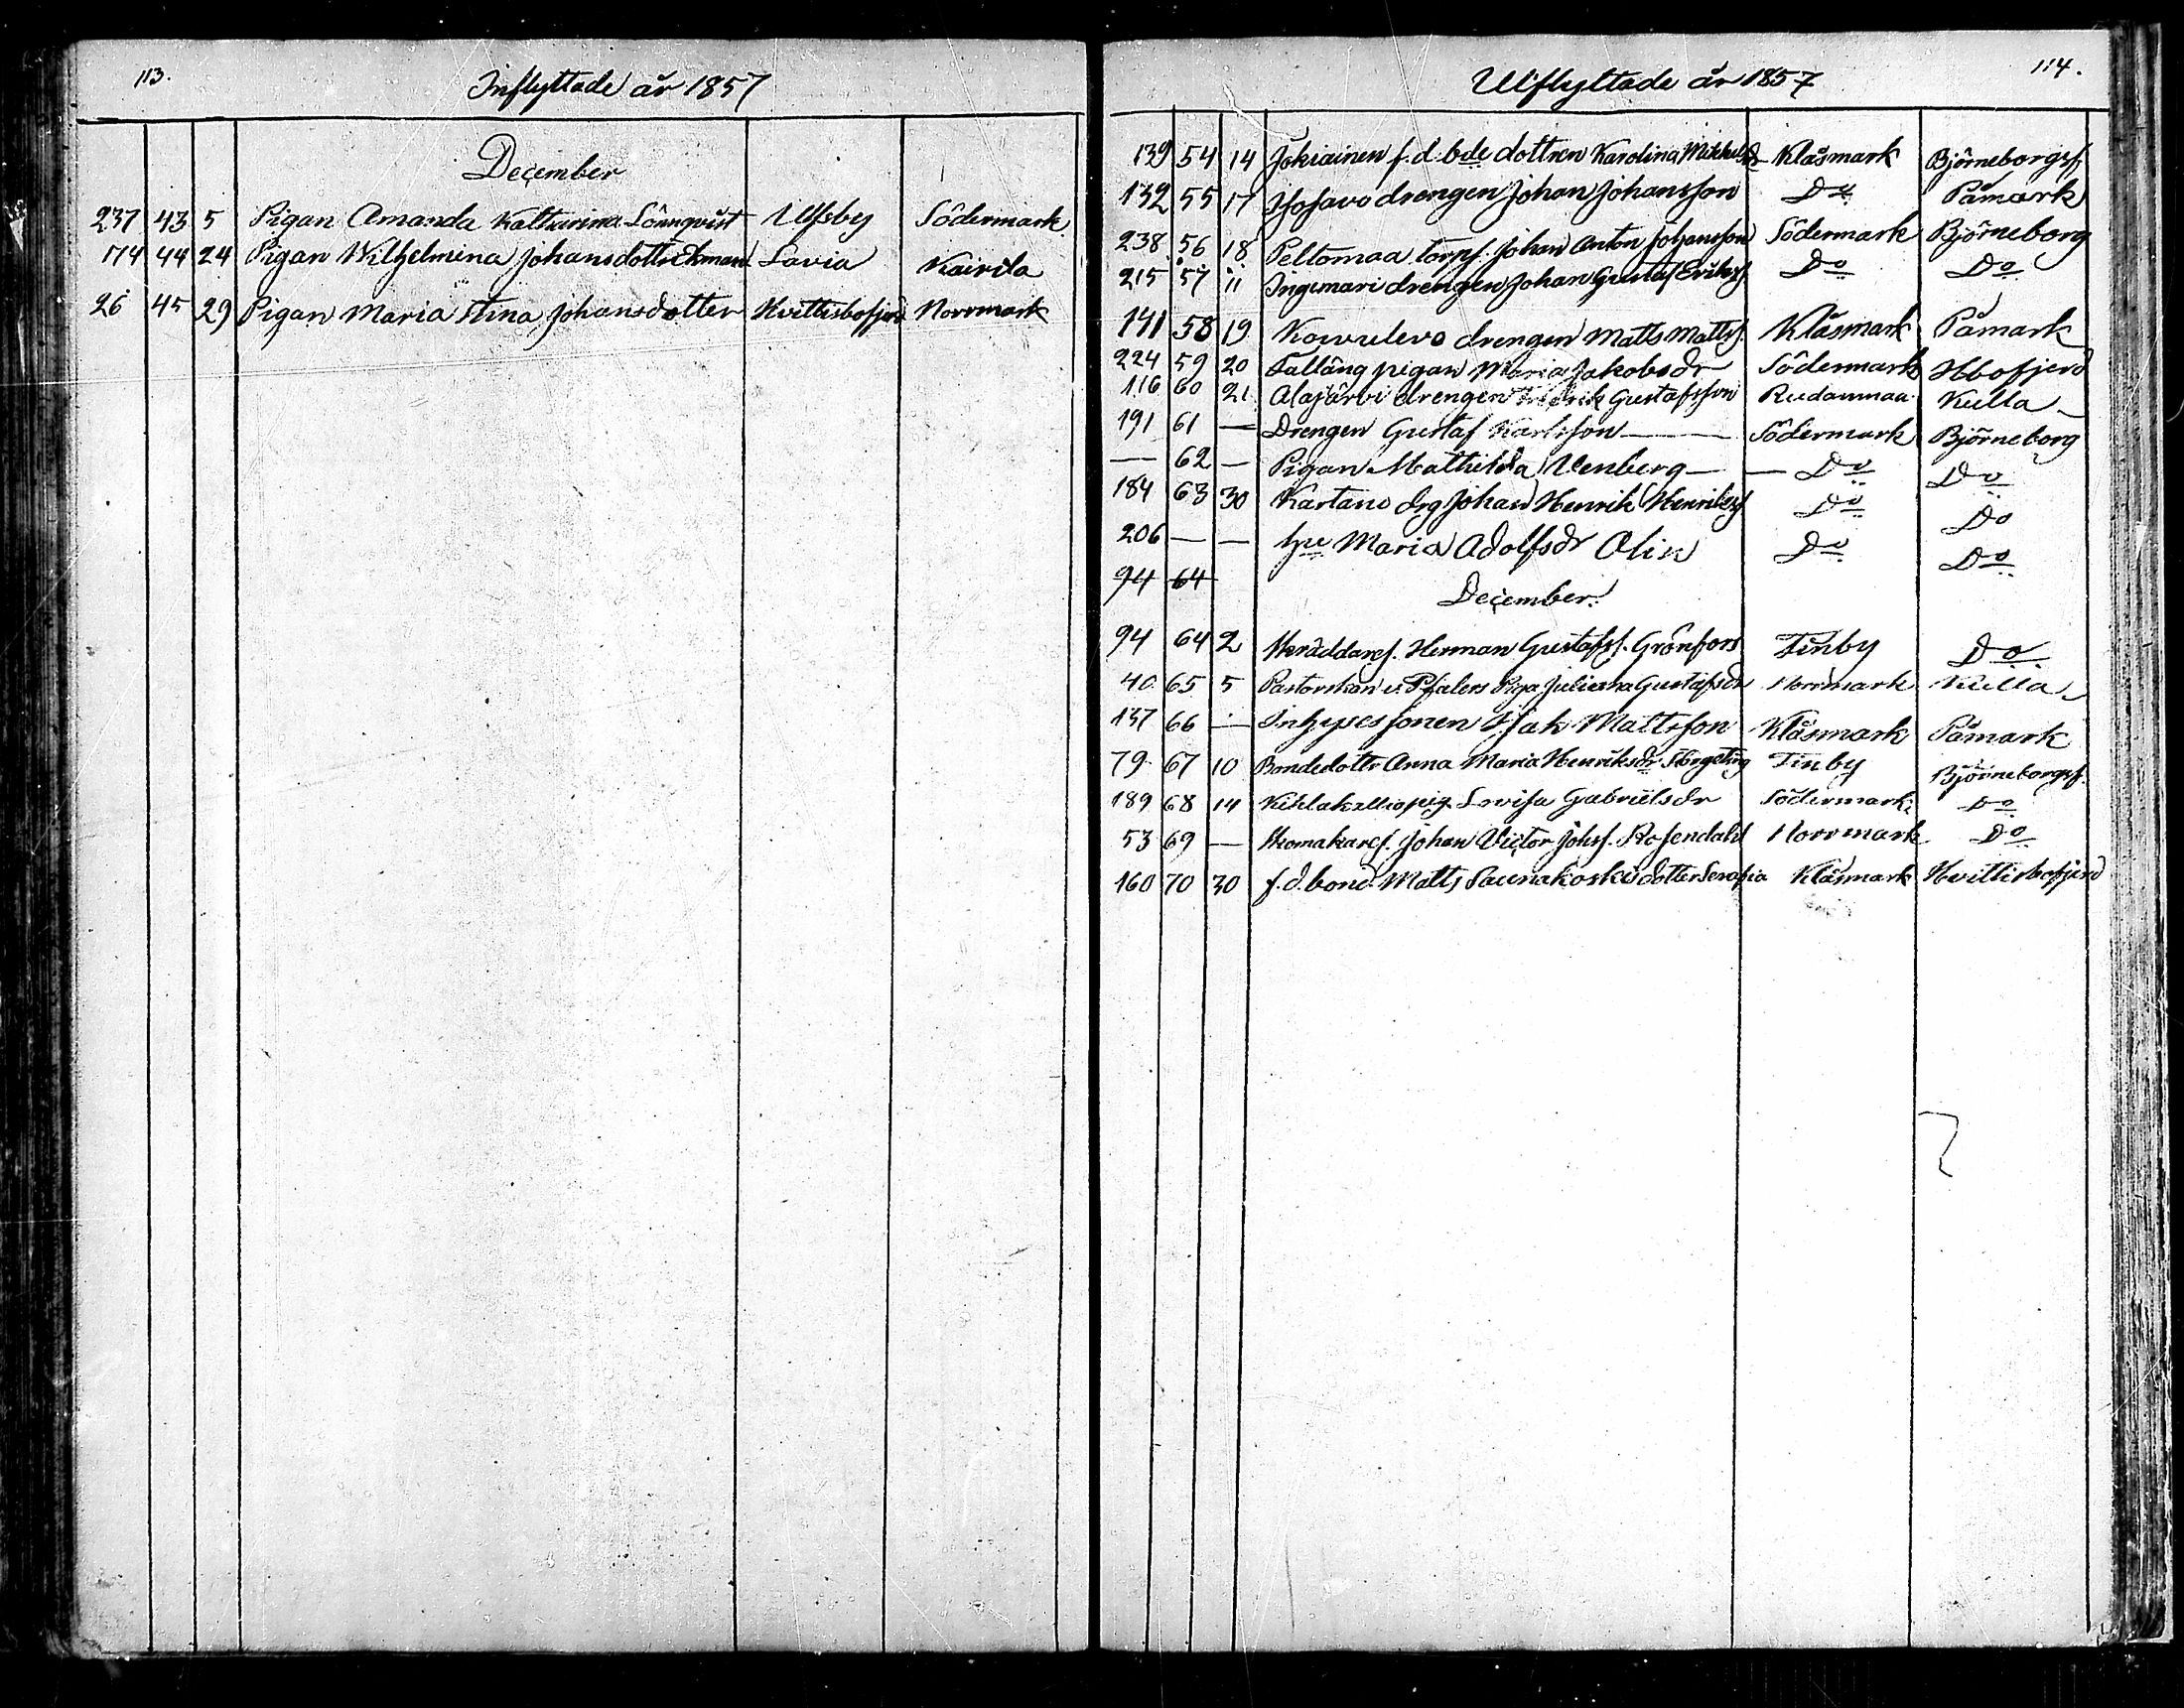 113.
Inflyttade år 1857
December
237 43 5 Pigan Amanda Katharina Lönnqvist Ulfsby Södermark
174 44 24 Pigan Wilhelmina Johansdottr Ekman Lavia Kairila
26 45 29 Pigan Maria Stina Johansdotter Hvittisbofjerd Norrmark
114.
Utflyttade år 1857
139 54 14 Jokiainen f.d. bde dottren Karolina Mikkelsdr Klåsmark Björneborgsf.
132 55 17 drengen Johan Johansson Do Påmark
238 56 18 Peltomaa torpf. Johan Anton Johansson Södermark Björneborg
215 57 " Ingemari drengen Johan Gustaf Eriksf. Do Do
141 58 19 drengen Matts Mattsf. Klåsmark Påmark
224 59 20 Tallång pigan Maria Jakobsdr Södermark Hbofjerd
116 60 21 Alajärvi drengen Fredrik Gustafsson Rudanmaa Kulla
191 61 — Drengen Gustaf Karlsson — Södermark Björneborg
— 62 — Pigan Mathilda Venberg — — Do Do
184 63 30 Kartano drg Johan Henrik Henriksf Do Do
206 — — hu Maria Adolfsdr Olin Do Do
94 64
December
94 64 2 Skräddaref. Herman Gustafsf. Grönfors Finby Do
40 65 5 Pastorskan v. Pfalers Piga Juliana Gustafsdr Norrmark Kulla
137 66 — Inhysessonen Isak Mattsson Klåsmark Påmark
79 67 10 Bondedottr Anna Maria Henriksdr Finby Björneborgsf.
189 68 14 Kihlakallio pig. Lovisa Gabrielsdr Södermark Do
53 69 — Skomakaref. Johan Victor Johsf. Rosendahl Norrmark Do
160 70 30 f.d. bond. Matts Paunakoski dotter Serafia Klåsmark Hvittisbofjerd